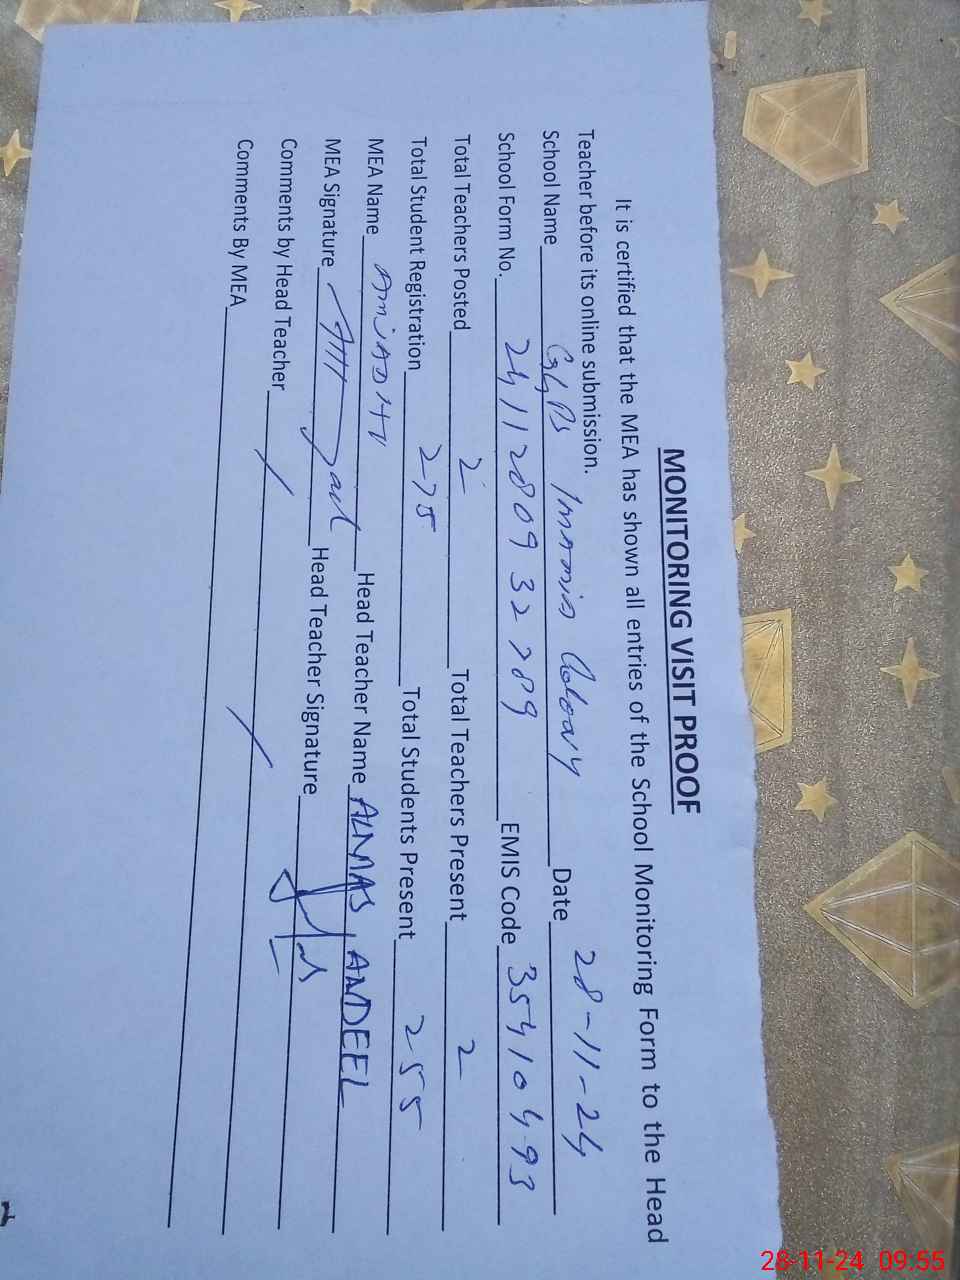 MONITORING VISIT PROOF
It is certified that the MEA has shown all entries of the School Monitoring Form to the Head
Teacher before its online submission.
School Name GGPS Imamia Colony Date 28-11-24
School Form No. 2411280932789 EMIS Code 35410493
Total Teachers Posted 2 Total Teachers Present 2
Total Student Registration 275 Total Students Present 255
MEA Name Head Teacher Name ALMAS, ANDEEL
MEA Signature Head Teacher Signature
Comments by Head Teacher
Comments By MEA
28-11-24 09.55